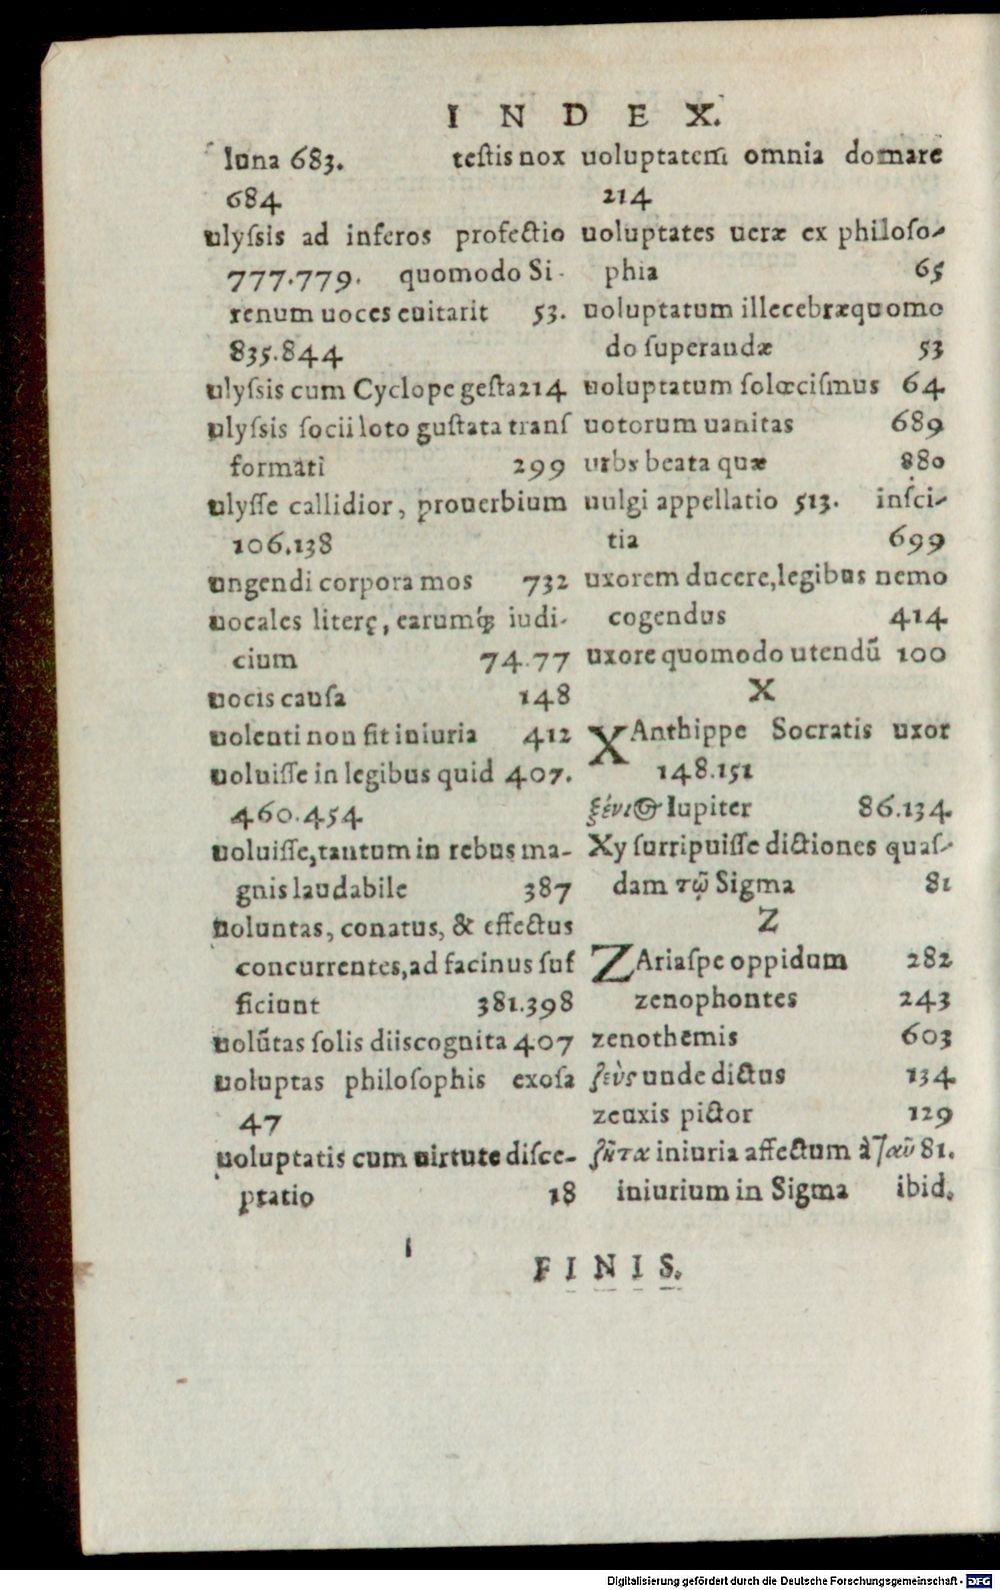 INDEX.
luna 683. testis nox
684
ulyſsis ad inferos profectio
777.779. quomodo Si-
renum uoces euitarit 53.
835.844
ulyſsis cum Cyclope geſta 214
ulyſsis ſocii loto guſtata tranſ
formati 299
ulyſſe callidior, prouerbium
106.138
ungendi corpora mos 732
uocales literę, earumq́ꝫ iudi-
cium 74.77
uocis cauſa 148
uolenti non fit iniuria 412
uoluiſſe in legibus quid 407.
460.454
uoluiſſe, tantum in rebus ma-
gnis laudabile 387
uoluntas, conatus, & effectus
concurrentes, ad facinus ſuf
ficiunt 381.398
uolũtas ſolis diis cognita 407
uoluptas philoſophis exoſa
47
uoluptatis cum uirtute diſce-
ptatio 18
uoluptatem omnia domare
214
uoluptates ueræ ex philoſo-
phia 65
uoluptatum illecebræ quomo
do ſuperandæ 53
uoluptatum ſolœciſmus 64
uotorum uanitas 689
urbs beata quæ 880
uulgi appellatio 513. inſci-
tia 699
uxorem ducere, legibus nemo
cogendus 414
uxore quomodo utendũ 100
X
XAnthippe Socratis uxor
148.151
ξένιος Iupiter 86.134
Xy ſurripuiſſe dictiones quaſ-
dam τῷ Sigma 81
Z
ZAriaſpe oppidum 282
zenophontes 243
zenothemis 603
ζεὺς unde dictus 134
zeuxis pictor 129
ζῆτα iniuria affectum à ταῦ 81.
iniurium in Sigma ibid.
FINIS.
Digitalisierung gefördert durch die Deutsche Forschungsgemeinschaft - DFG